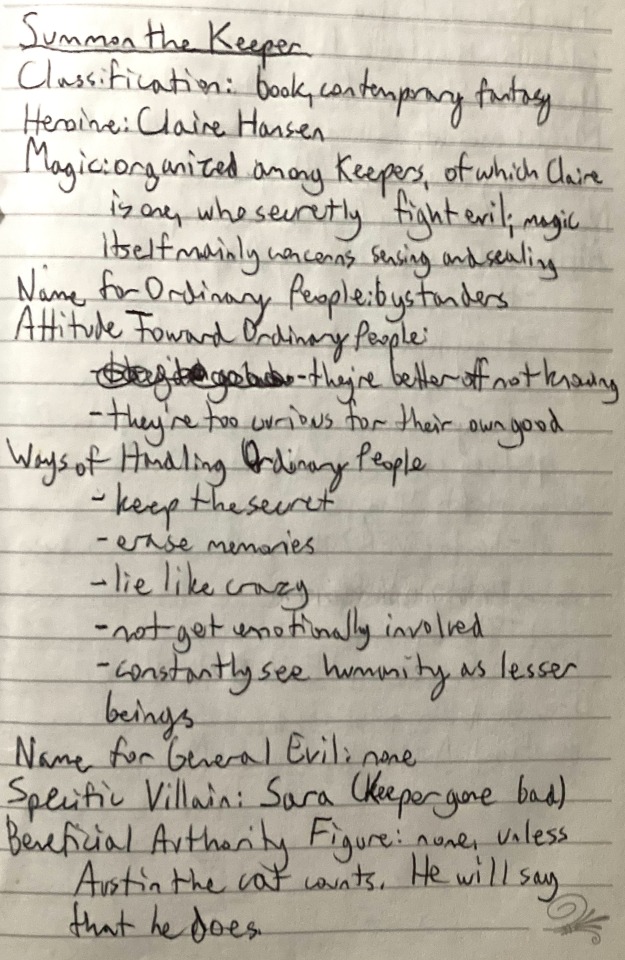 Summon the Keeper
Classification: book, contemporary fantasy
Heroine: Claire Hansen
Magic: organized among Keepers, of which Claire
is one, who secretly fight evil; magic
itself mainly concerns sensing and sealing
Name for Ordinary People: bystanders
Attitude Toward Ordinary People:
- they're better off not knowing
- they're too curious for their own good
Ways of Handling Ordinary People
- keep the secret
- erase memories
- lie like crazy
- not get emotionally involved
- constantly see humanity as lesser
beings
Name for General Evil: none
Specific Villain: Sara (Keeper gone bad)
Beneficial Authority Figure: none, unless
Austin the cat counts. He will say
that he does.